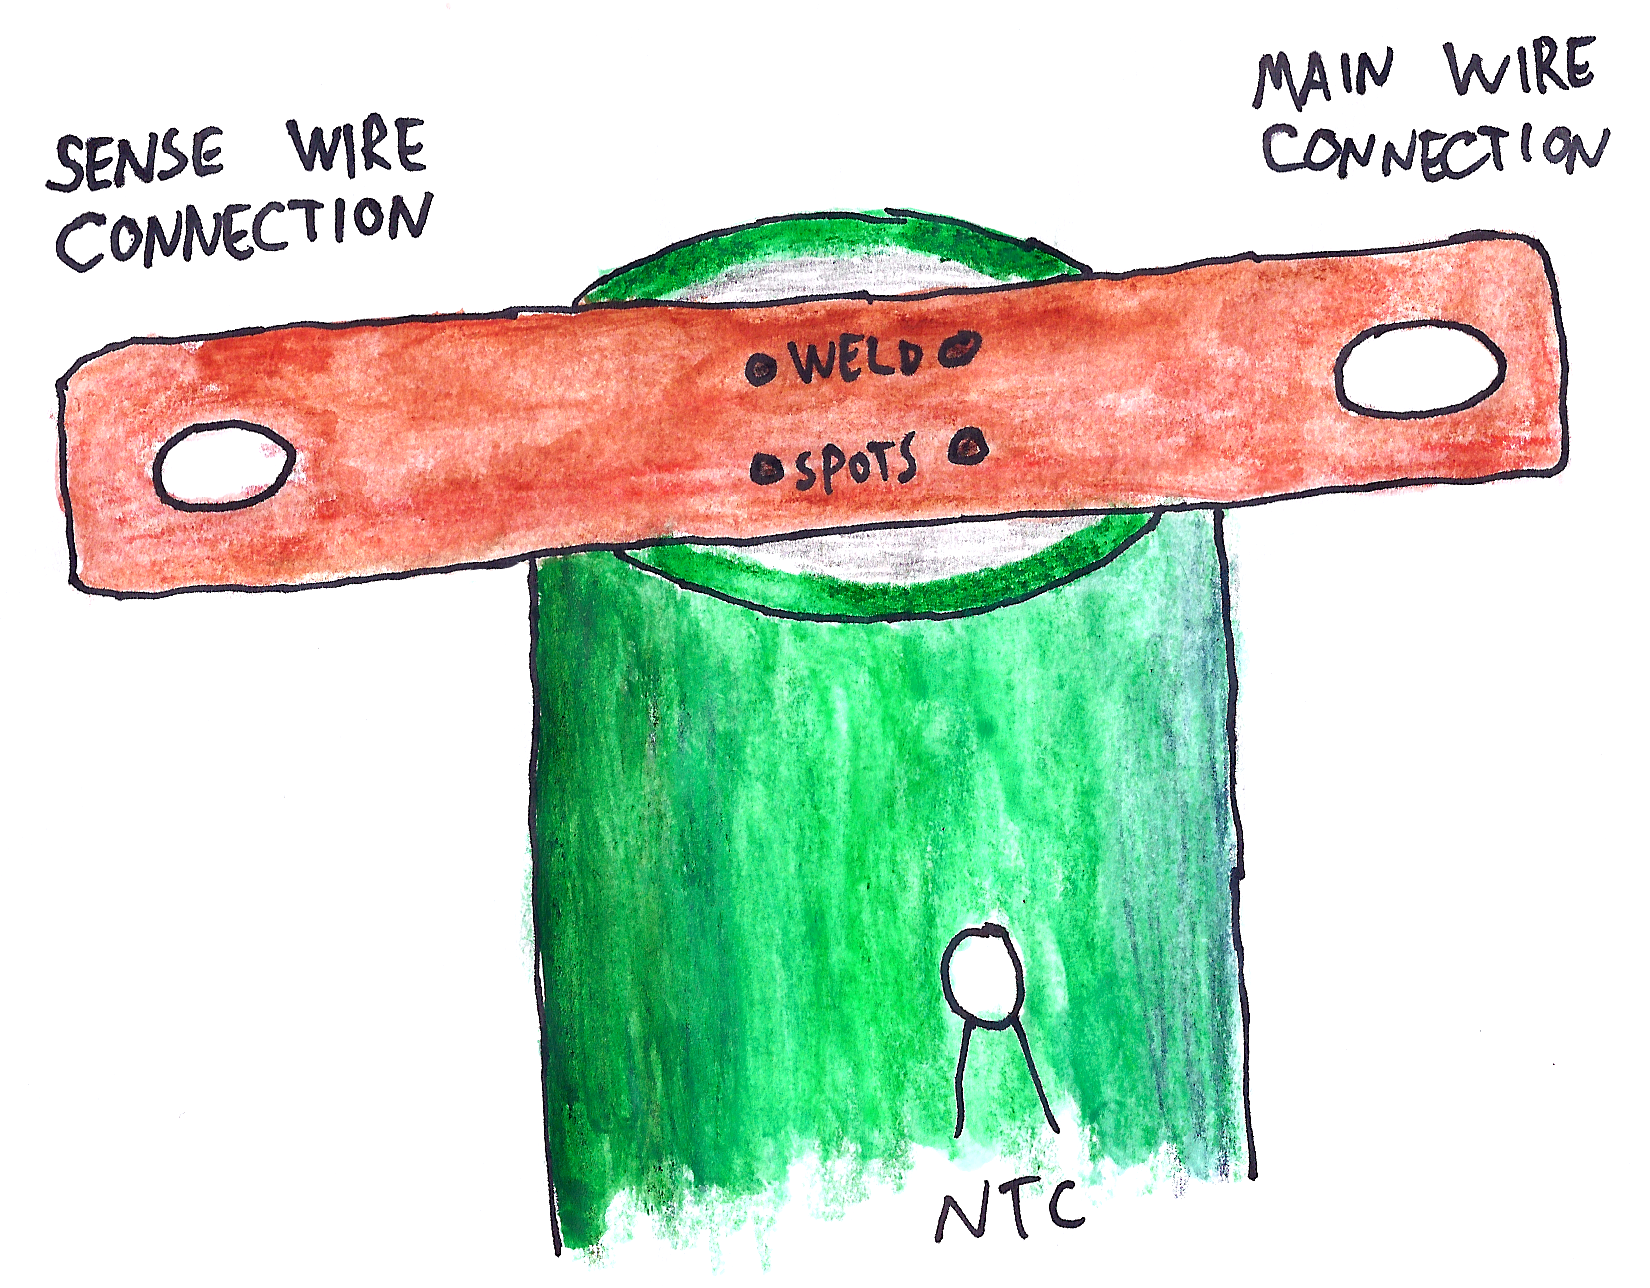 SENSE WIRE
CONNECTION
MAIN WIRE
CONNECTION
WELD
SPOTS
NTC